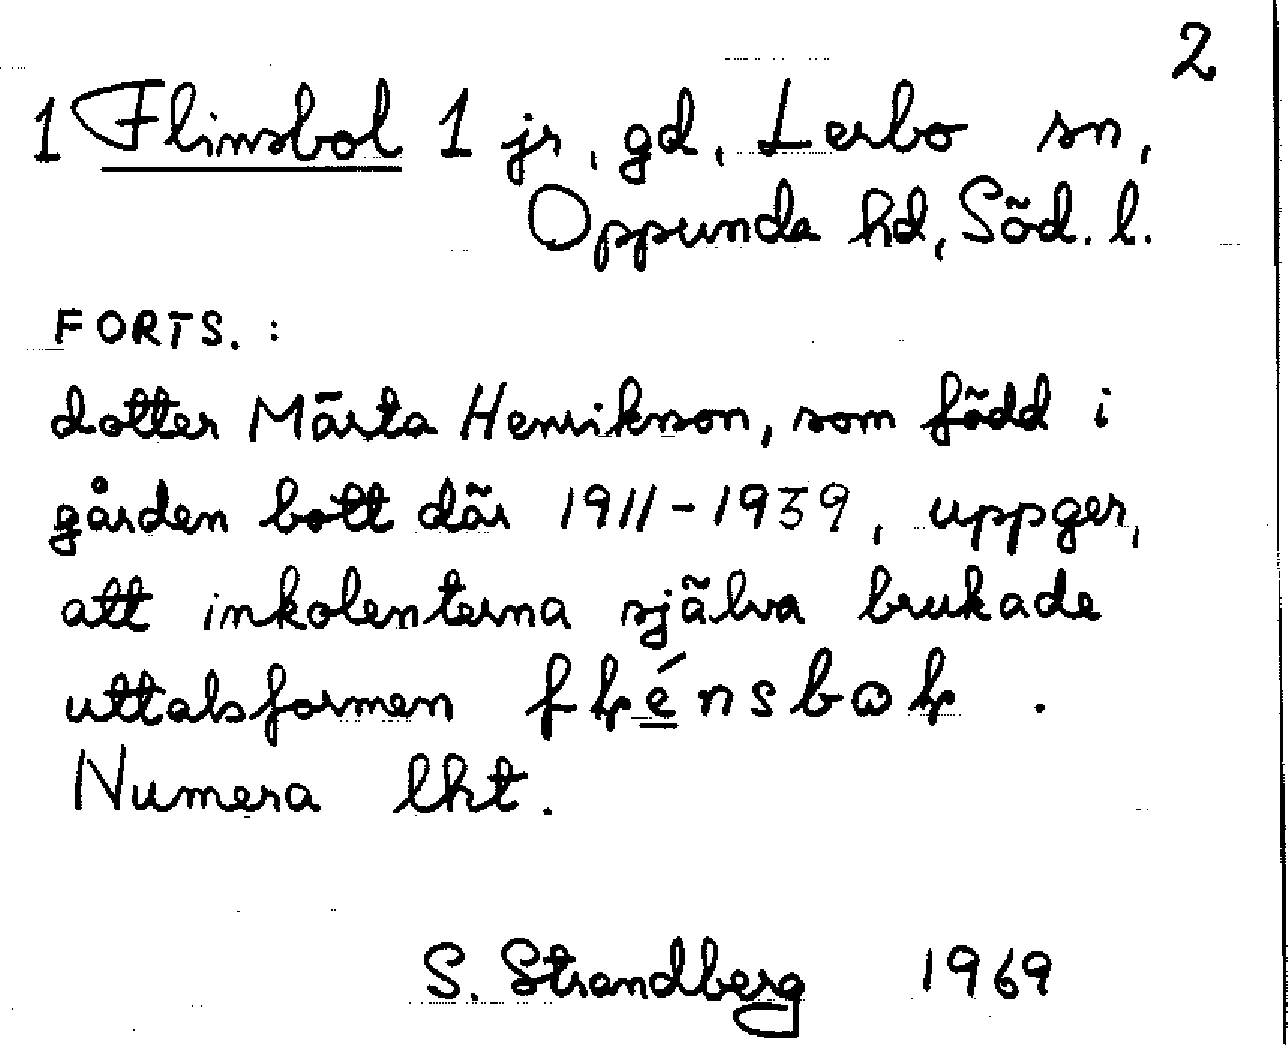 2
1 Flinsbol 1 jr, gd, Lerbo sn,
Oppunda hd, Söd. l.
FORTS. :
dotter Märta Henrikson, som född i
gården bott där 1911-1939, uppger,
att inkolenterna själva brukade
uttalsformen
Numera lht.
S. Strandberg 1969